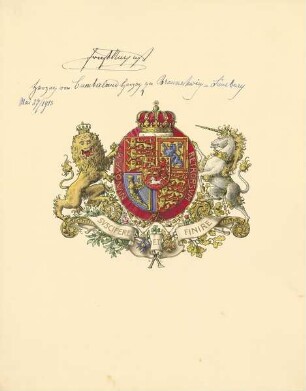 Ernst August
Herzog von Cumberland Herzog zu Braunschweig u. Lüneburg
Mai 27/1913
SUSCIPERE ET FINIRE